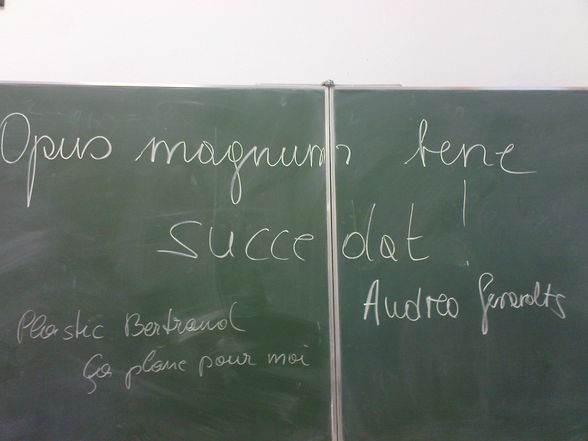 Opus magnum bene
succedat!
Audrea
Plastic Bertrand
Ça plane pour moi